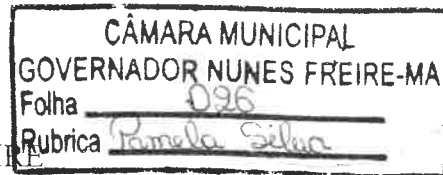 CÂMARA MUNICIPAL
GOVERNADOR NUNES FREIRE-MA
Folha 026
Rubrica Pamela Silva
RE